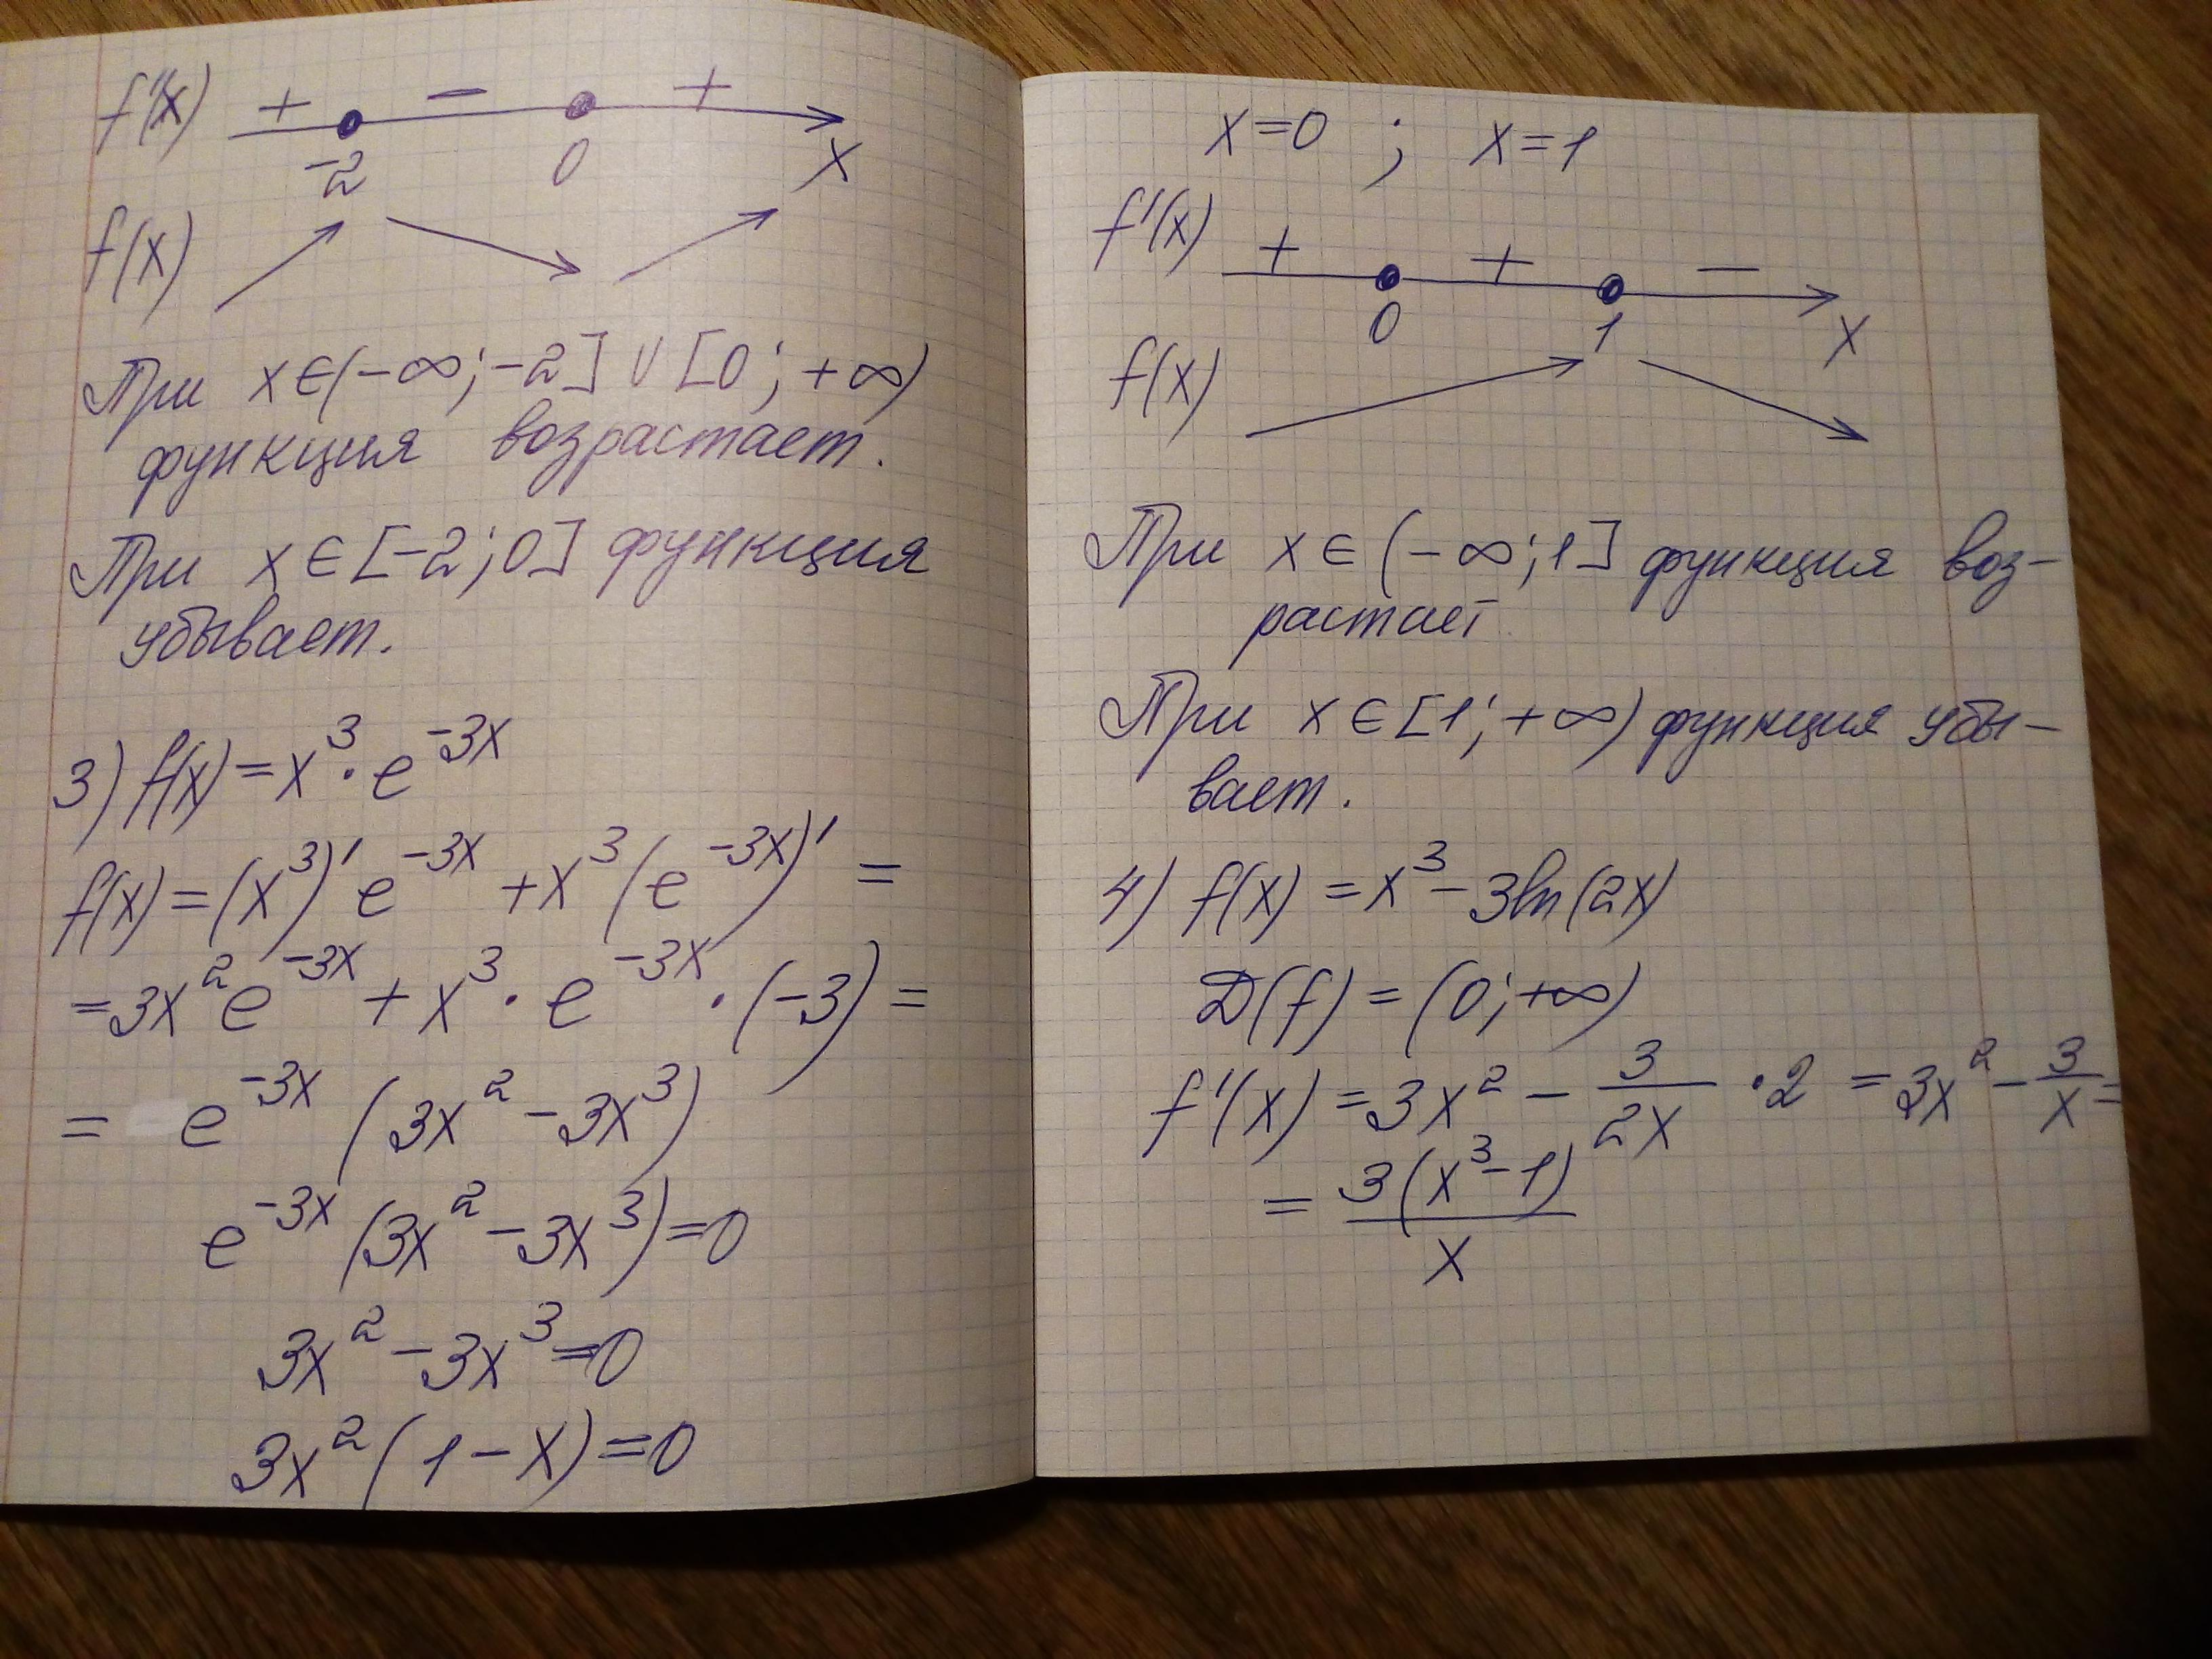 f'(x) + − + 
-2 0 x
f(x)
При x∈(-∞;-2]∪[0;+∞)
функция возрастает.
При x∈[-2;0] функция
убывает.
3) f(x)=x³·e⁻³ˣ
f(x)=(x³)'e⁻³ˣ+x³(e⁻³ˣ)'=
=3x²e⁻³ˣ+x³·e⁻³ˣ·(-3)=
=e⁻³ˣ(3x²-3x³)
e⁻³ˣ(3x²-3x³)=0
3x²-3x³=0
3x²(1-x)=0
x=0 ; x=1
f'(x) + + −
0 1 x
f(x)
При x∈(-∞;1] функция воз-
растает
При x∈[1;+∞) функция убы-
вает.
4) f(x)=x³-3ln(2x)
D(f)=(0;+∞)
f'(x)=3x²-3/2x·2=3x²-3/x=
=3(x³-1)/x